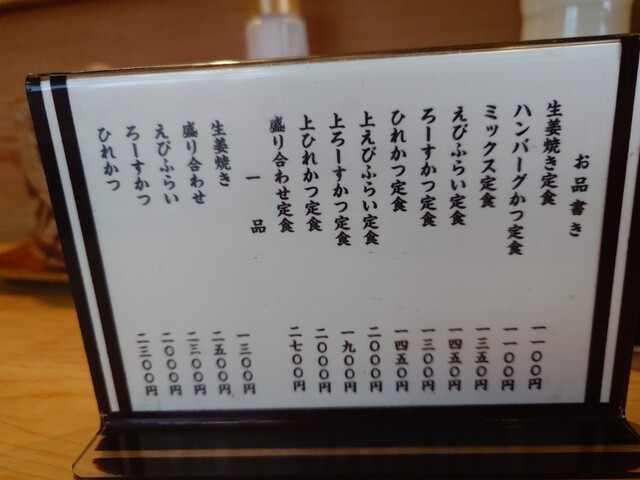 お品書き
生姜焼き定食 一一〇〇円
ハンバーグかつ定食 一一〇〇円
ミックス定食 一三五〇円
えびふらい定食 一四五〇円
ろーすかつ定食 一三〇〇円
ひれかつ定食 一四五〇円
上えびふらい定食 二〇〇〇円
上ろーすかつ定食 一九〇〇円
上ひれかつ定食 二〇〇〇円
盛り合わせ定食 二七〇〇円
一品
生姜焼き 一三〇〇円
盛り合わせ 二五〇〇円
えびふらい 二三〇〇円
ろーすかつ 二〇〇〇円
ひれかつ 二三〇〇円